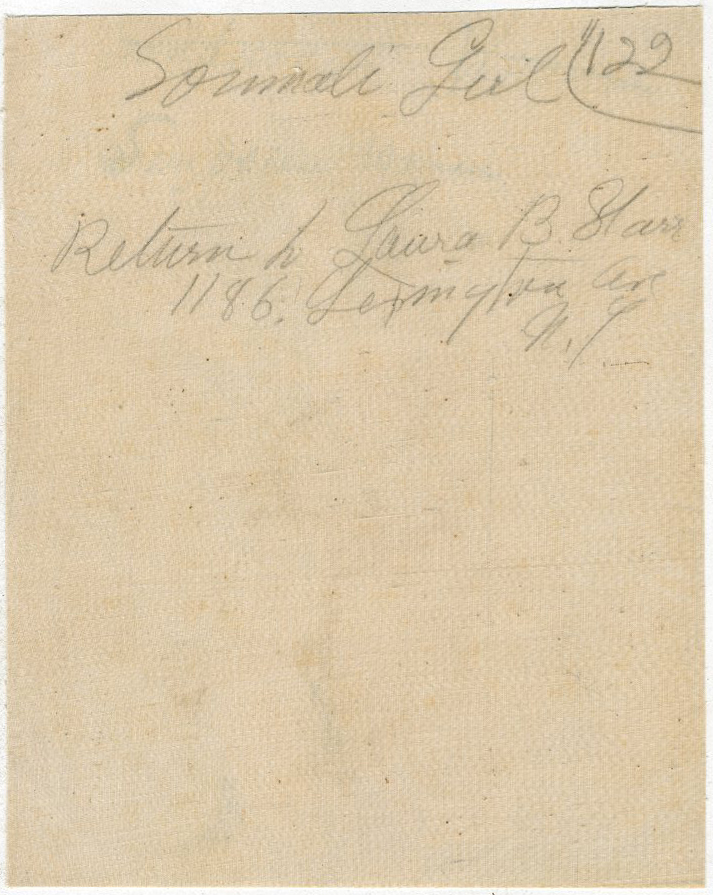 Soumali Girl #122
Return to Laura B. Starr
1186. Lexington Ave
N.Y